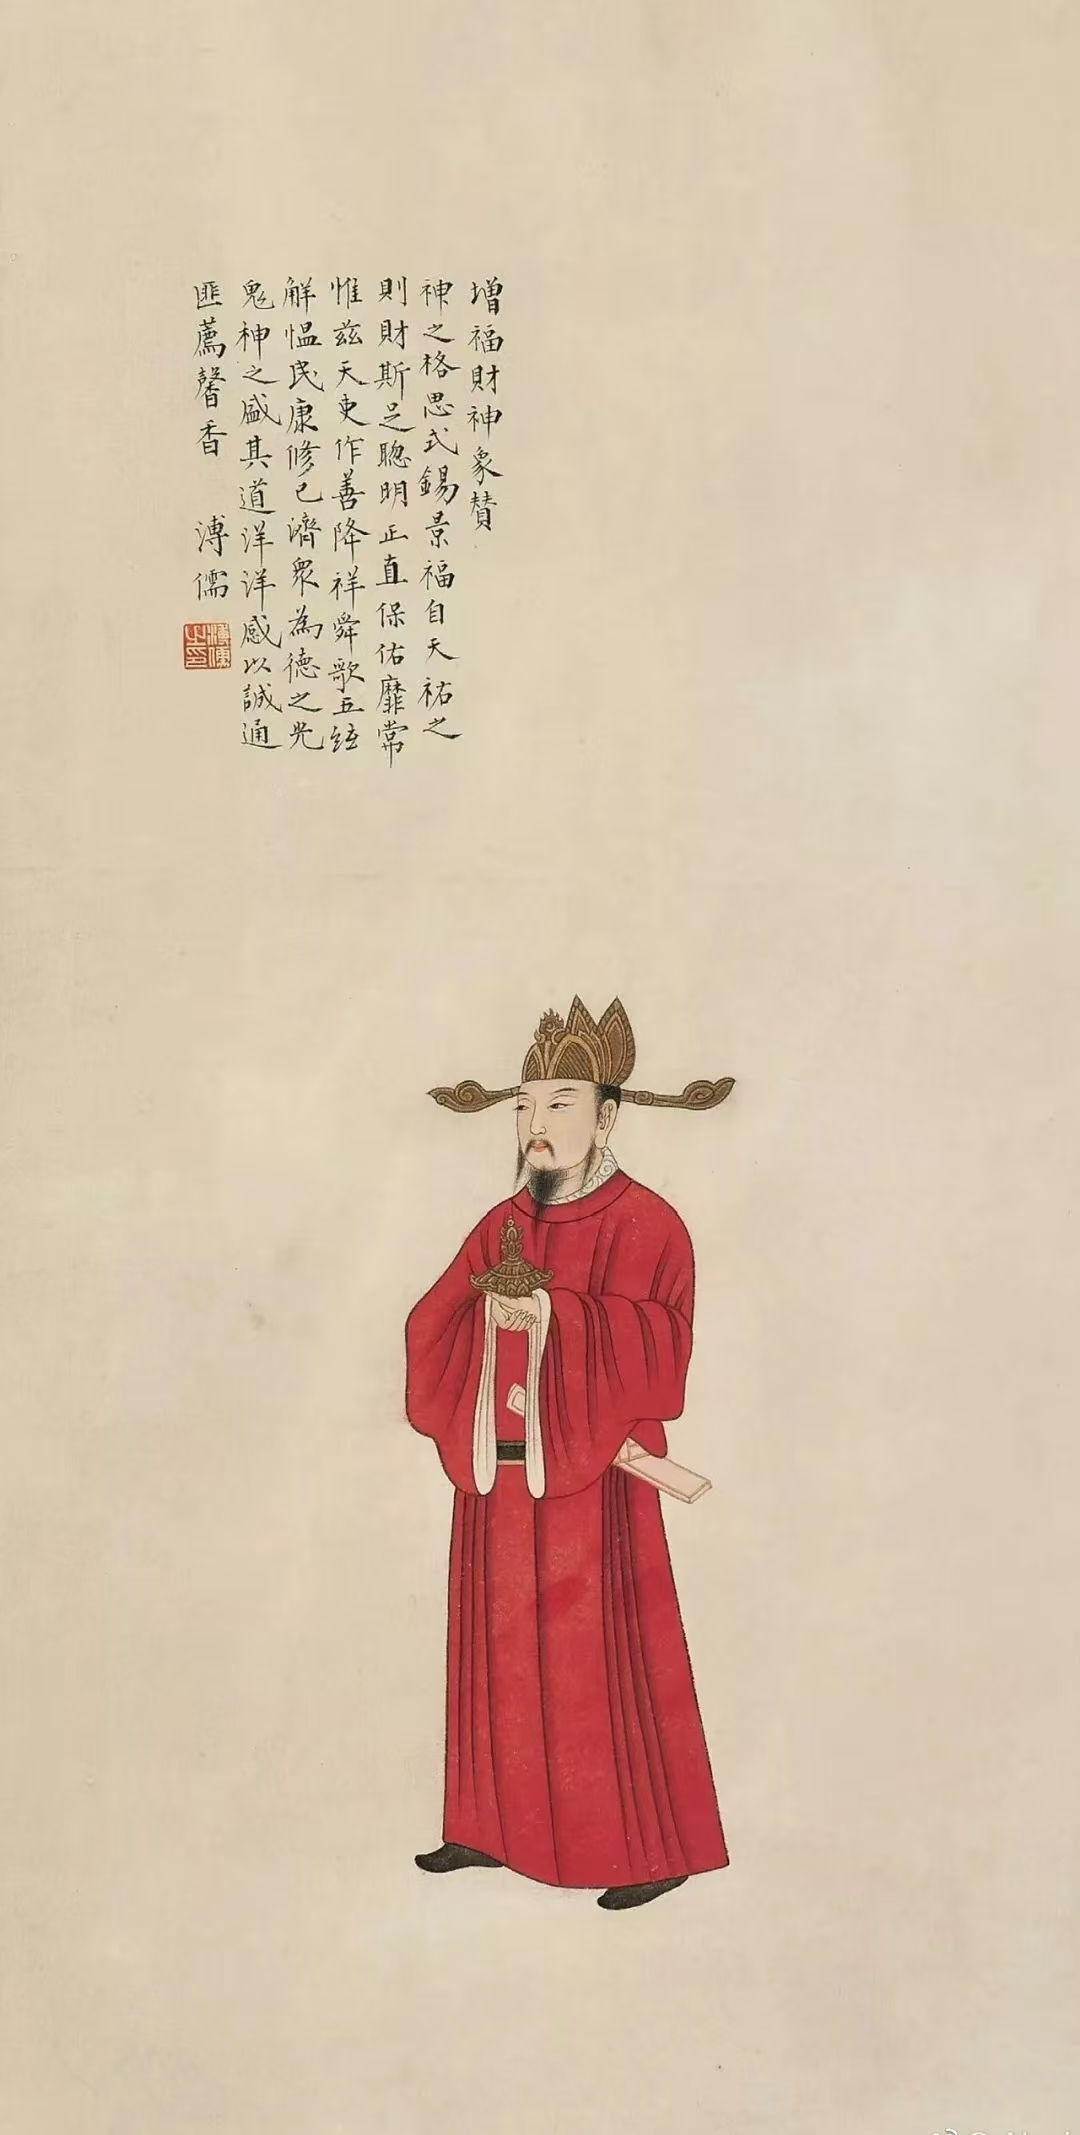 增福財神象賛
神之格思式錫景福自天祐之
則財斯足聰明正直保佑靡常
惟兹天吏作善降祥舜歌五絃
解慍民康修己濟眾為德之光
鬼神之盛其道洋洋感以誠通
匪薦馨香 溥儒
溥儒之印